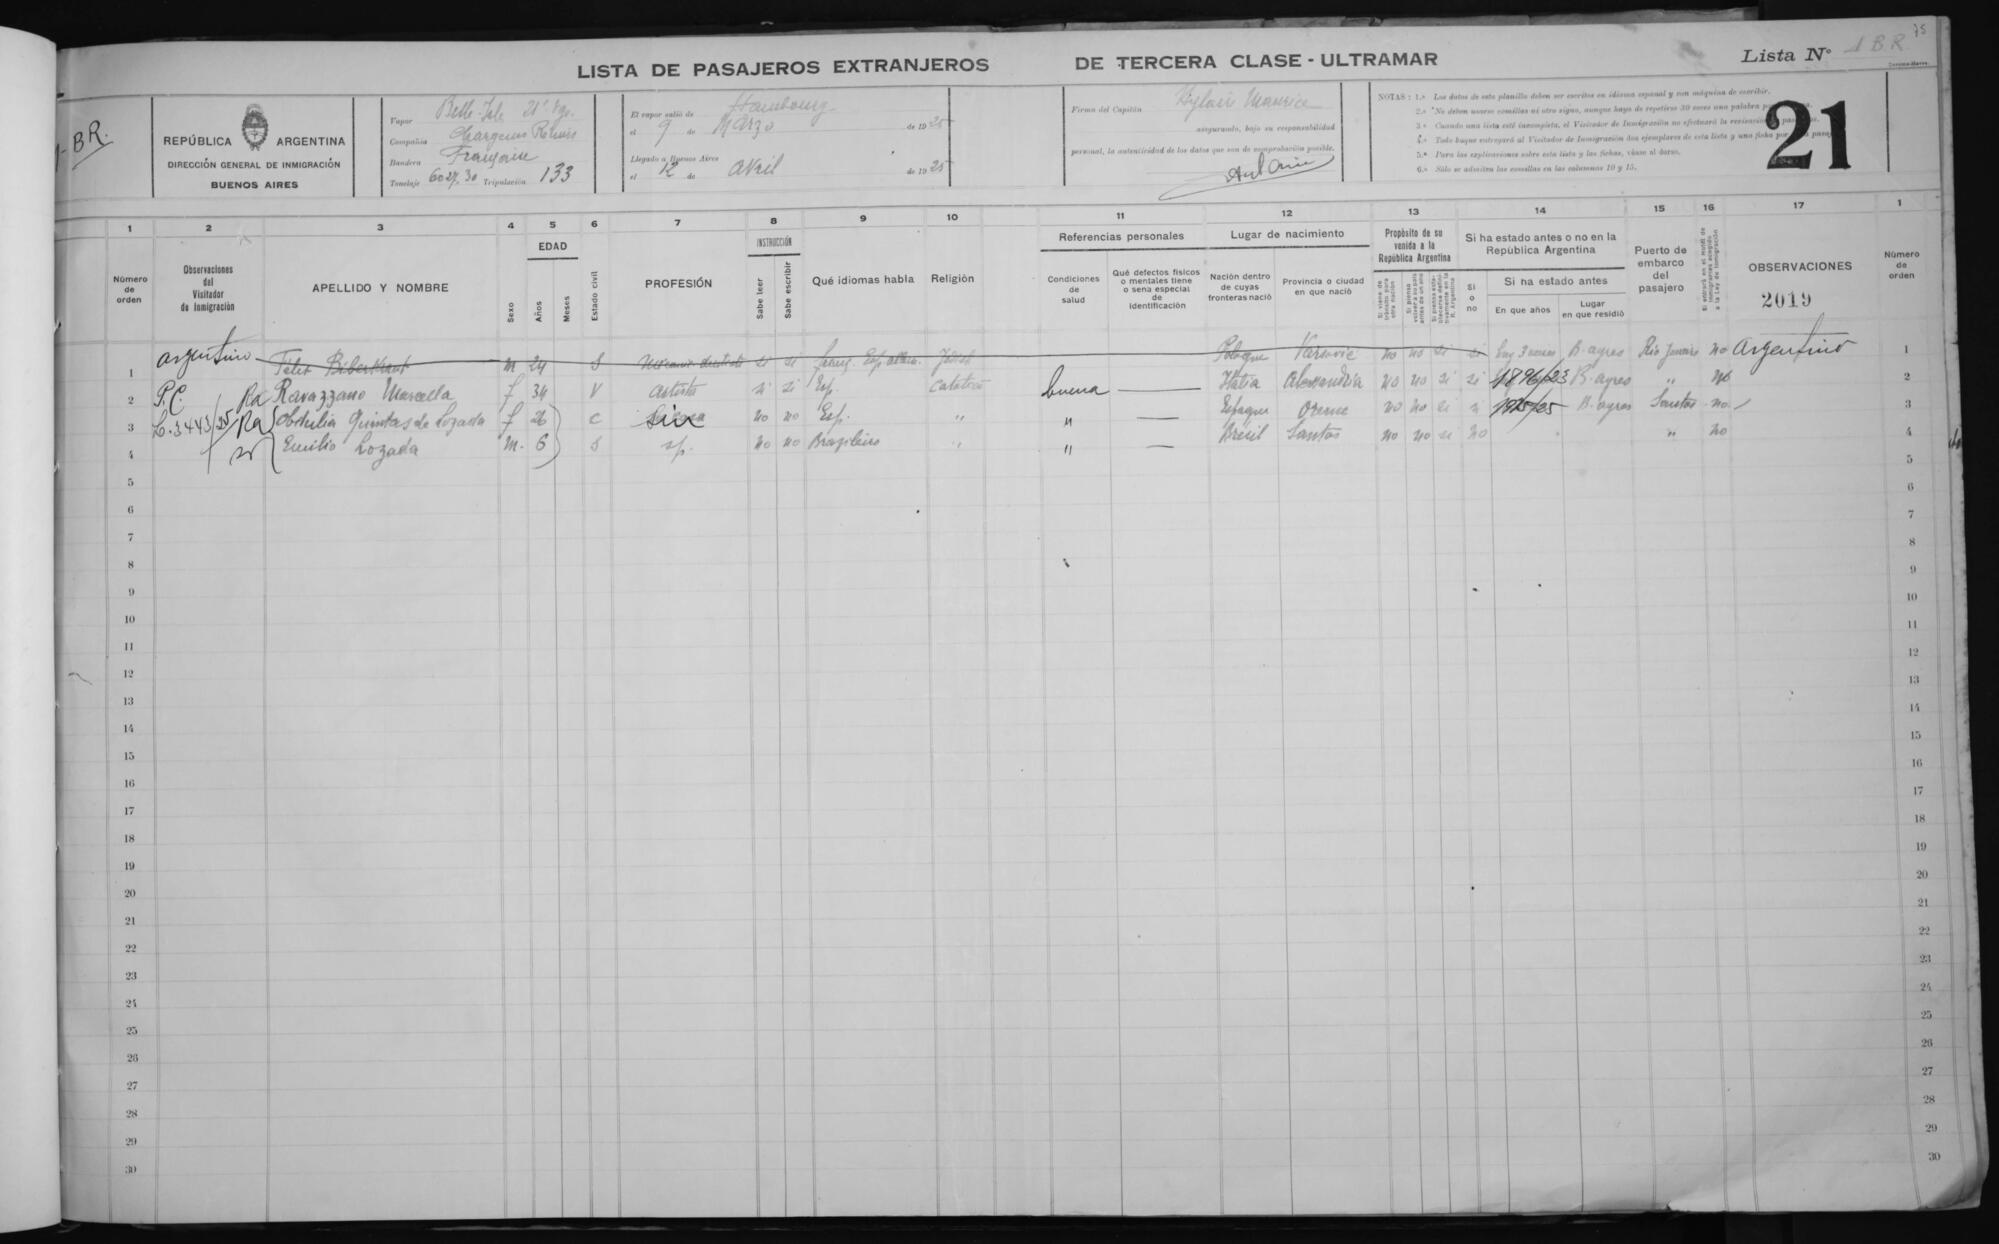 LISTA DE PASAJEROS EXTRANJEROS DE TERCERA CLASE - ULTRAMAR
Lista Nº 1 B.R. 75
-BR.
REPÚBLICA ARGENTINA
DIRECCIÓN GENERAL DE INMIGRACIÓN
BUENOS AIRES
Vapor Belle-Isle 21º
Compañía Chargeurs Réunis
Bandera Française
Tonelaje 6027,30 Tripulación 133
El vapor salió de Hambourg
el 9 de Marzo de 1925
Llegado a Buenos Aires
el 12 de Avril de 1925
Firma del Capitán Maurice
asegurando, bajo su responsabilidad
personal, la autenticidad de los datos que son de comprobación posible.
NOTAS: 1.ª Los datos de esta planilla deben ser escritos en idioma español y con máquina de escribir.
2.ª No deben usarse comillas ni otro signo, aunque haya de repetirse 30 veces una palabra
3.ª Cuando una lista esté incompleta, el Visitador de Inmigración no efectuará la revisación
4.ª Todo buque entregará al Visitador de Inmigración dos ejemplares de esta lista y una ficha por
5.ª Para las explicaciones sobre esta lista y las fichas, véase al dorso.
6.ª Sólo se admiten las comillas en las columnas 10 y 15.
21
1 2 3 4 5 6 7 8 9 10 11 12 13 14 15 16 17 1
Número de orden
Observaciones del Visitador de Inmigración
APELLIDO Y NOMBRE
Sexo
EDAD
Años
Meses
Estado civil
PROFESIÓN
INSTRUCCIÓN
Sabe leer
Sabe escribir
Qué idiomas habla
Religión
Referencias personales
Condiciones de salud
Qué defectos físicos o mentales tiene o sena especial de identificación
Lugar de nacimiento
Nación dentro de cuyas fronteras nació
Provincia o ciudad en que nació
Propósito de su venida a la República Argentina
Si viene de tránsito para otra nación
Si ha estado antes o no en la República Argentina
Si o no
Si ha estado antes
En que años
Lugar en que residió
Puerto de embarco del pasajero
OBSERVACIONES
2019
Número de orden
1 argentino Felix Biberkraut m 24 S si si Pologne Varsovie no no si si B. ayres Rio Janeiro no Argentino 1
2 P.C Ra Ravazzano Marcella f 34 V artista si si Esp. Catolica buena — Italia Alessandria no no si si 1896/23 B. ayres " no 2
3 L. 3443/25 Ra Obdulia Quintas de Lozada f 26 C no no Esp. " " — Espagne Orense no no si si B. ayres Santos no 3
4 Emilio Lozada m. 6 S s/p. no no Brazileiro " " — Brésil Santos no no si no " no 4
5 5
6 6
7 7
8 8
9 9
10 10
11 11
12 12
13 13
14 14
15 15
16 16
17 17
18 18
19 19
20 20
21 21
22 22
23 23
24 24
25 25
26 26
27 27
28 28
29 29
30 30